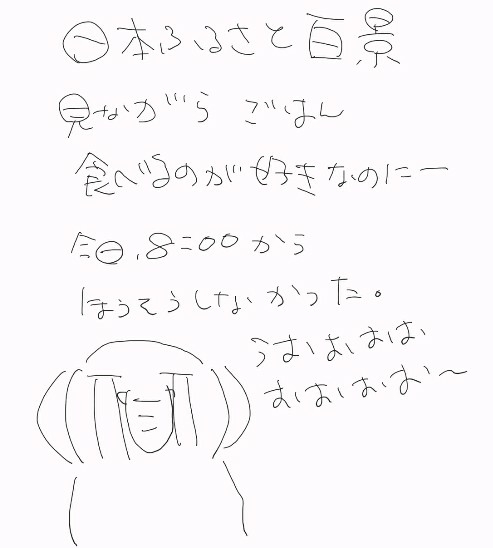 日本ふるさと百景
見ながら ごはん
食べるのが好きなのにー
今日、8:00から
ほうそうしないかった。
うおいおいおおい
おおいおいおおい〜